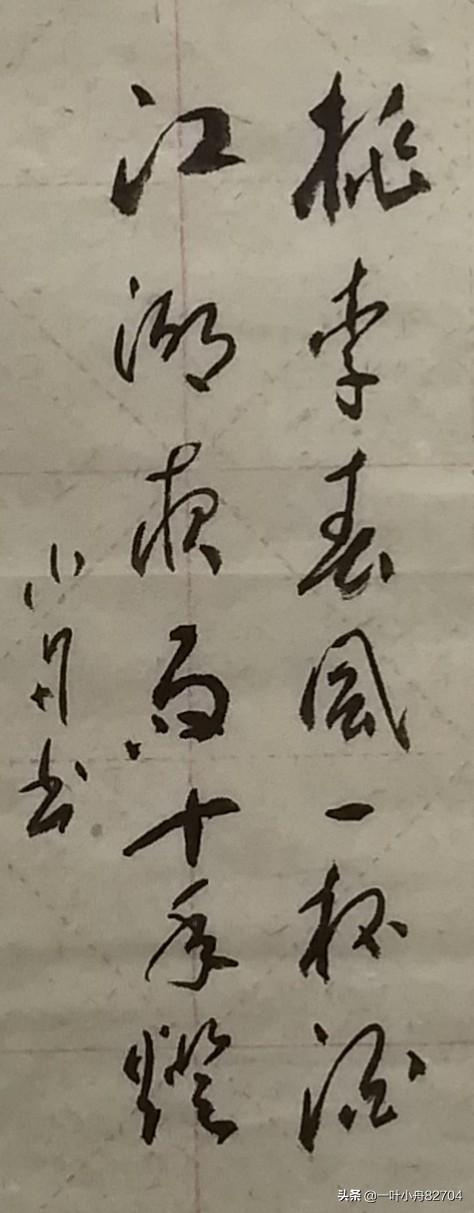 桃李春風一杯酒
江湖夜雨十年燈
小舟书
头条 @一叶小舟82704